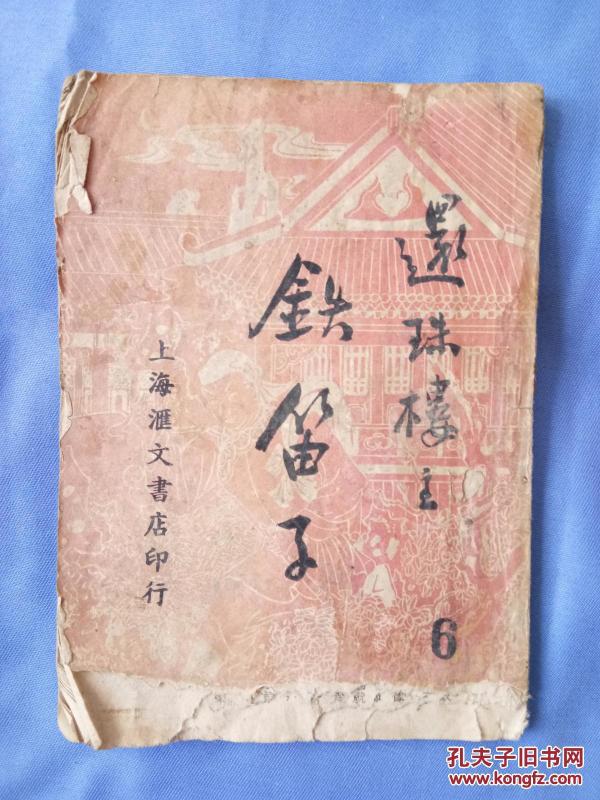 還珠樓主
鉄笛子
上海滙文書店印行
6
孔夫子旧书网
www.kongfz.com